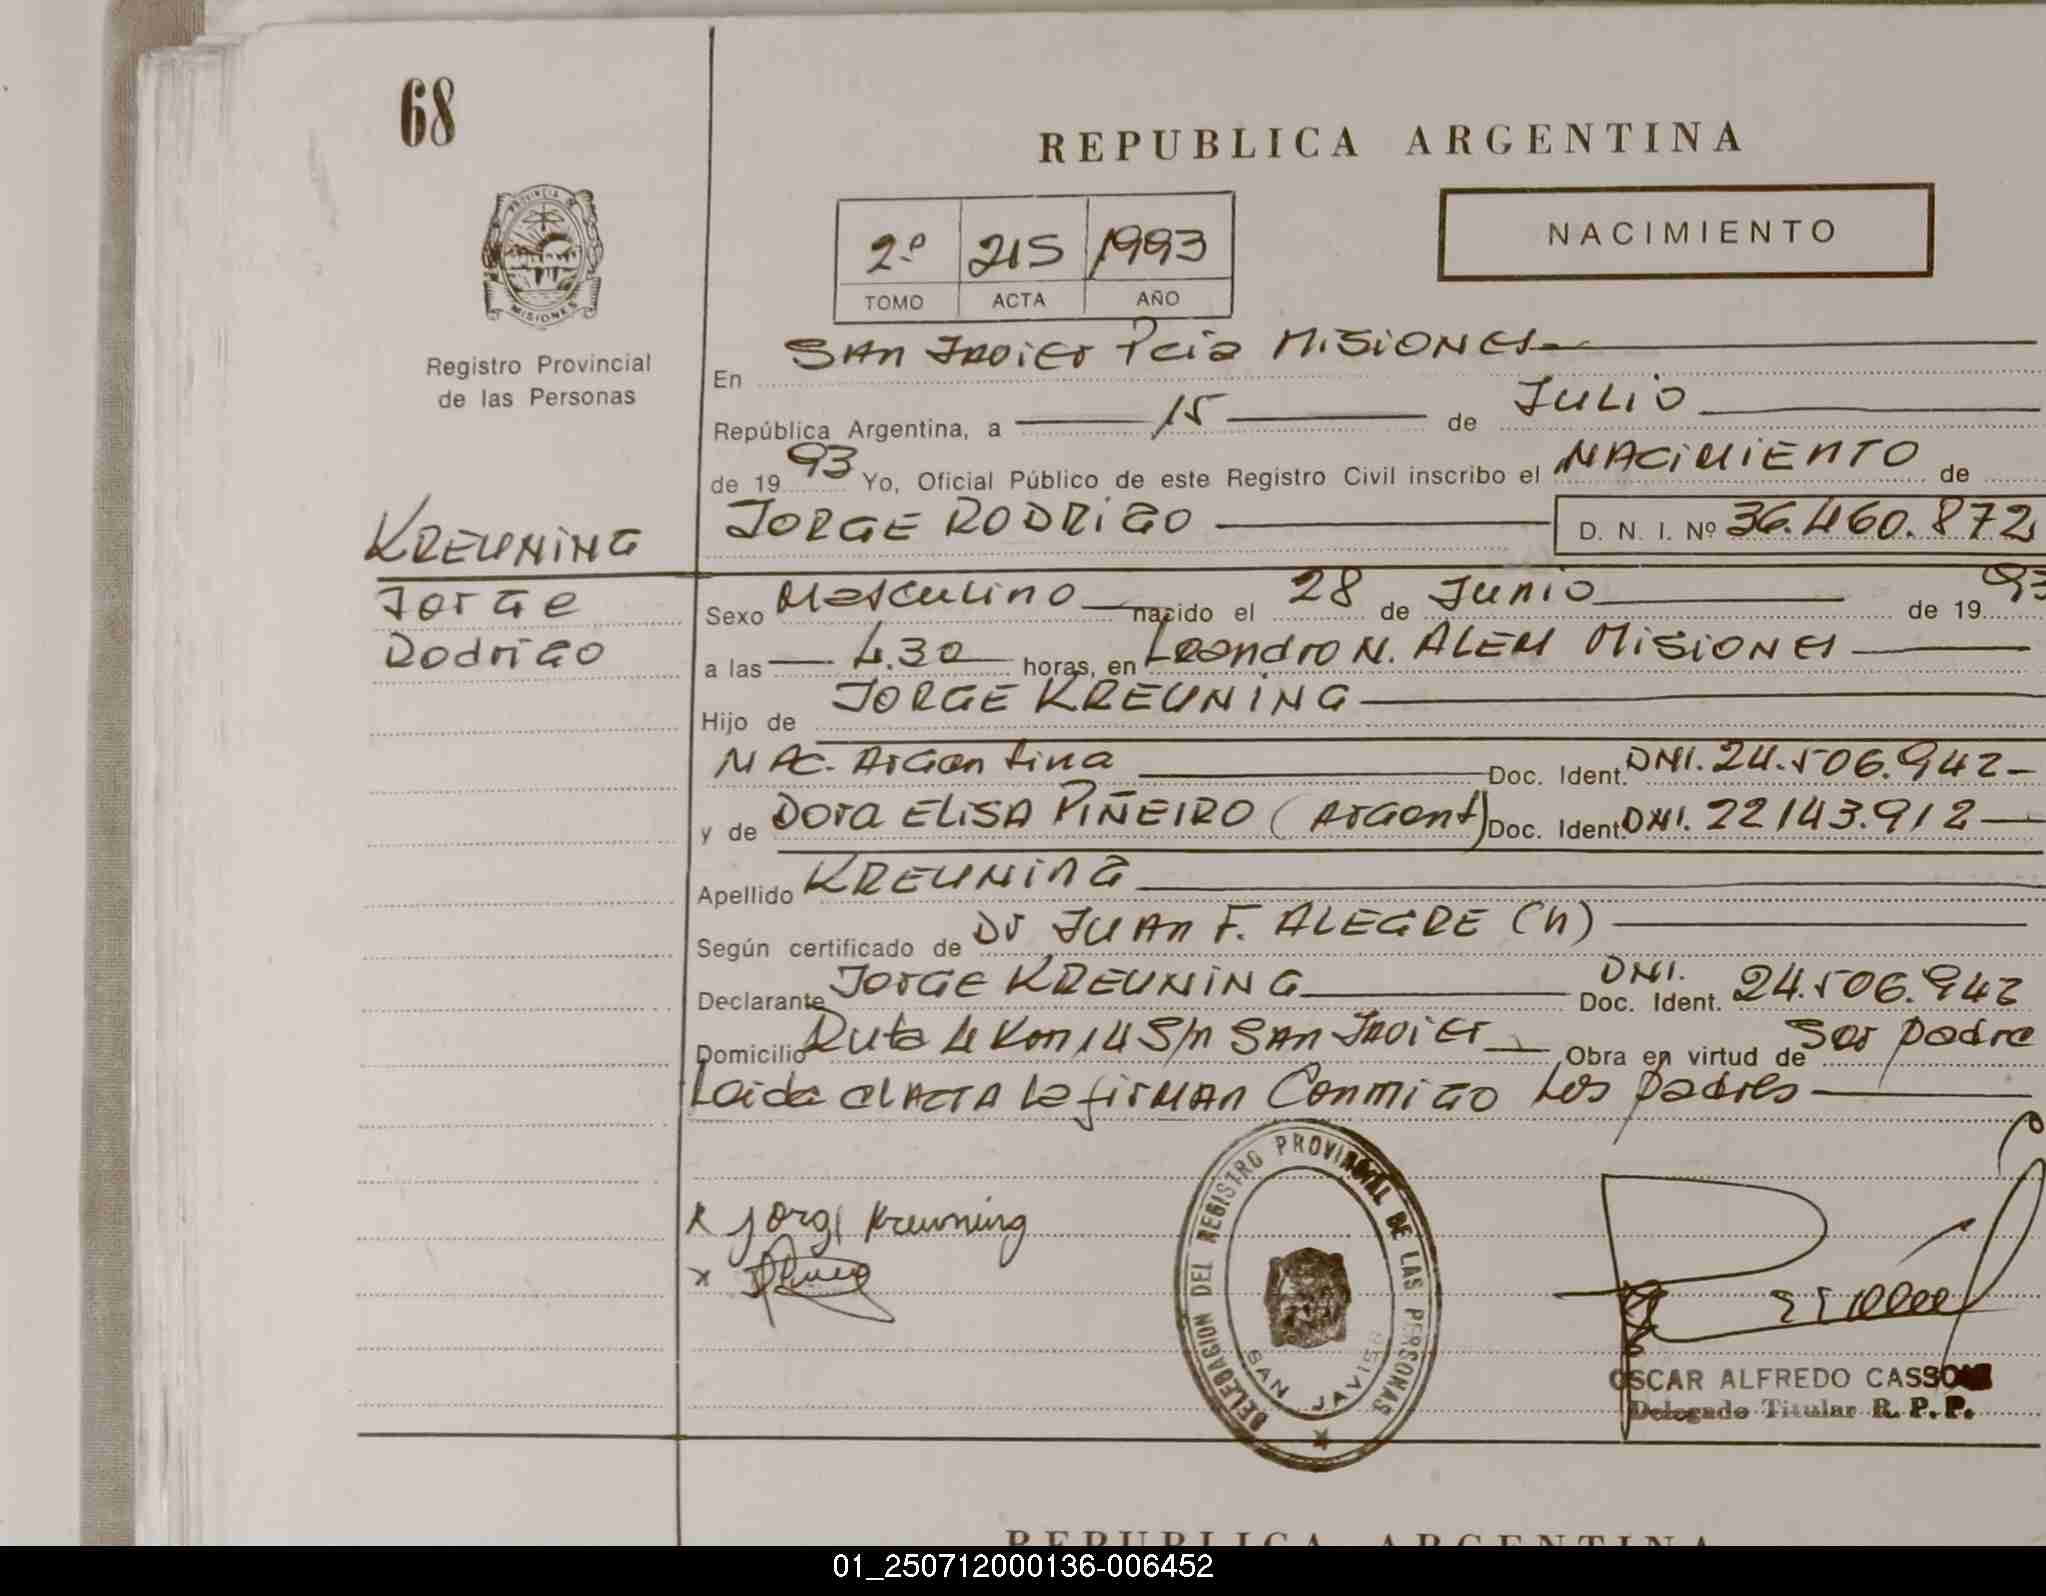 68
REPUBLICA ARGENTINA
PROVINCIA DE
MISIONES
2º 215 1993
TOMO ACTA AÑO
NACIMIENTO
Registro Provincial
de las Personas
En San Javier Pcia Misiones
República Argentina, a 15 de Julio
de 19 93 Yo, Oficial Público de este Registro Civil inscribo el NACIMIENTO de
KREUNING
Jorge
Rodrigo
JORGE RODRIGO D. N. I. Nº 36.460.872
Sexo Masculino nacido el 28 de Junio de 19 93
a las 4.30 horas, en Leandro N. ALEM MISIONES
Hijo de JORGE KREUNING
NAC. Argentina Doc. Ident. DNI. 24.506.942
y de Dora ELISA PIÑEIRO (Argent) Doc. Ident DNI. 22143.912
Apellido KREUNING
Según certificado de Dr JUAN F. ALEGRE (h)
Declarante JORGE KREUNING DNI. Doc. Ident. 24.506.942
Domicilio Ruta 4 Km 14 S/n SAN Javier Obra en virtud de Ser padre
Leida el ACTA la firman Conmigo Los padres
x Jorge Kreuning
x
DELEGACION DEL REGISTRO PROVINCIAL DE LAS PERSONAS
SAN JAVIER
OSCAR ALFREDO CASSONI
Delegado Titular R. P. P.
REPUBLICA ARGENTINA
01_250712000136-006452